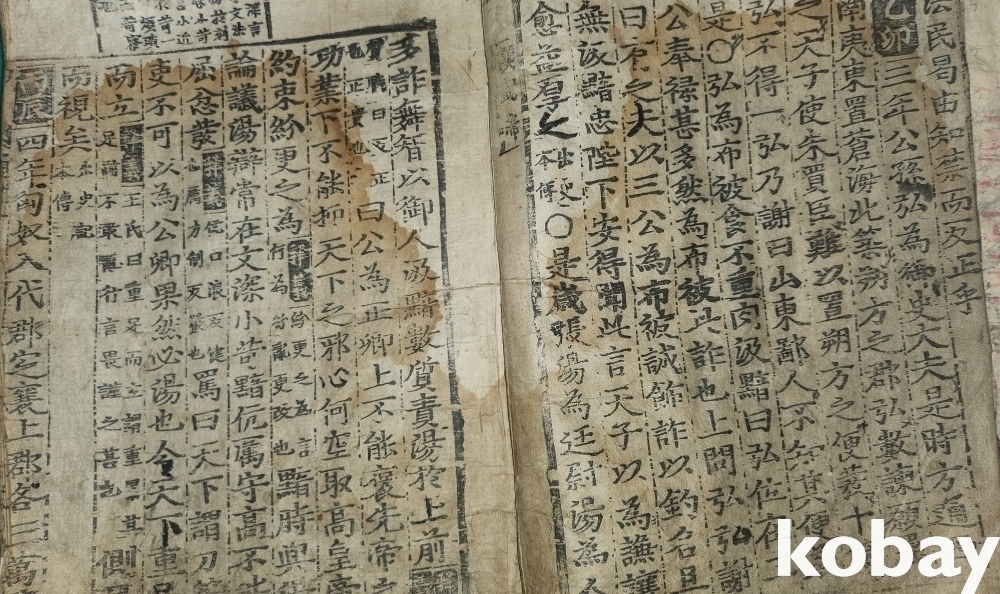 民曷由知禁而反正乎
乙卯 三年公孫弘為御史大夫是時方通
南夷東置蒼海北築朔方之郡弘數諫
之天子使朱買臣難以置朔方之便發十
弘不得一弘乃謝曰山東鄙人不知其便
是〇弘為布被食不重肉汲黯曰弘位在
公奉祿甚多然為布被此詐也上問弘弘謝
曰有之夫以三公為布被誠飾詐以釣名且
無汲黯忠陛下安得聞此言天子以為謙讓
愈益厚之 出史本傳 〇是歲張湯為廷尉湯為人
多詐舞智以御人汲黯數質責湯於上前
曰公為正卿上不能褒先帝之
功業下不能抑天下之邪心何空取高皇帝
約束紛更之為 紛更之為言何為紛亂更改也 黯時與湯
論議湯辯常在文深小苛黯伉厲守高不能
屈忿發 罵曰天下謂刀筆
吏不可以為公卿果然必湯也令天下重足
而立 王氏曰重足而立謂重累其足謂不敢行言畏謹之甚也 側
而視矣 出史記本傳
丙辰 四年匈奴入代郡定襄上郡各三萬
kobay